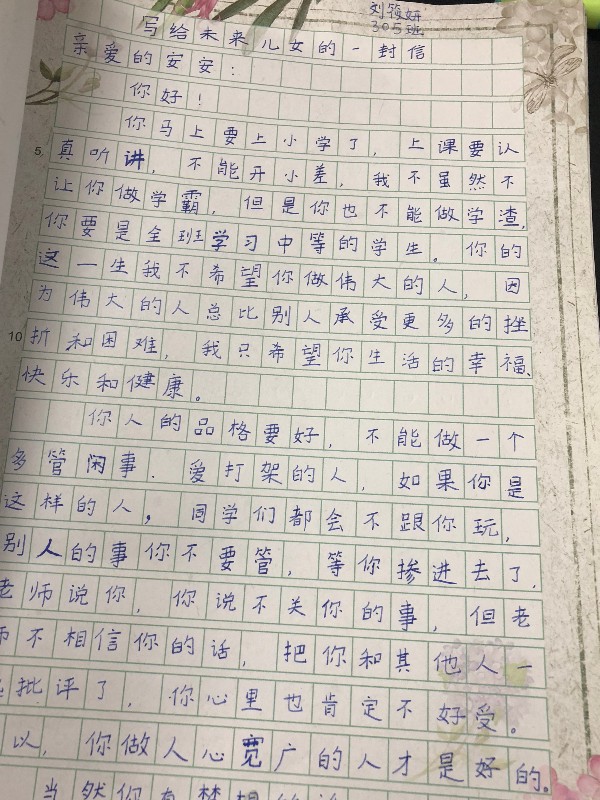 刘筱妍
305班
写给未来儿女的一封信
亲爱的安安：
你好！
你马上要上小学了，上课要认
5.
真听讲，不能开小差，我不虽然不
让你做学霸，但是你也不能做学渣，
你要是全班学习中等的学生。你的
这一生我不希望你做伟大的人，因
为伟大的人总比别人承受更多的挫
10
折和困难，我只希望你生活的幸福、
快乐和健康。
你人的品格要好，不能做一个
多管闲事．爱打架的人，如果你是
这样的人，同学们都会不跟你玩，
别人的事你不要管，等你掺进去了，
老师说你，你说不关你的事，但老
师不相信你的话，把你和其他人一
起批评了，你心里也肯定不好受。
以，你做人心宽广的人才是好的。
当然你有梦想的